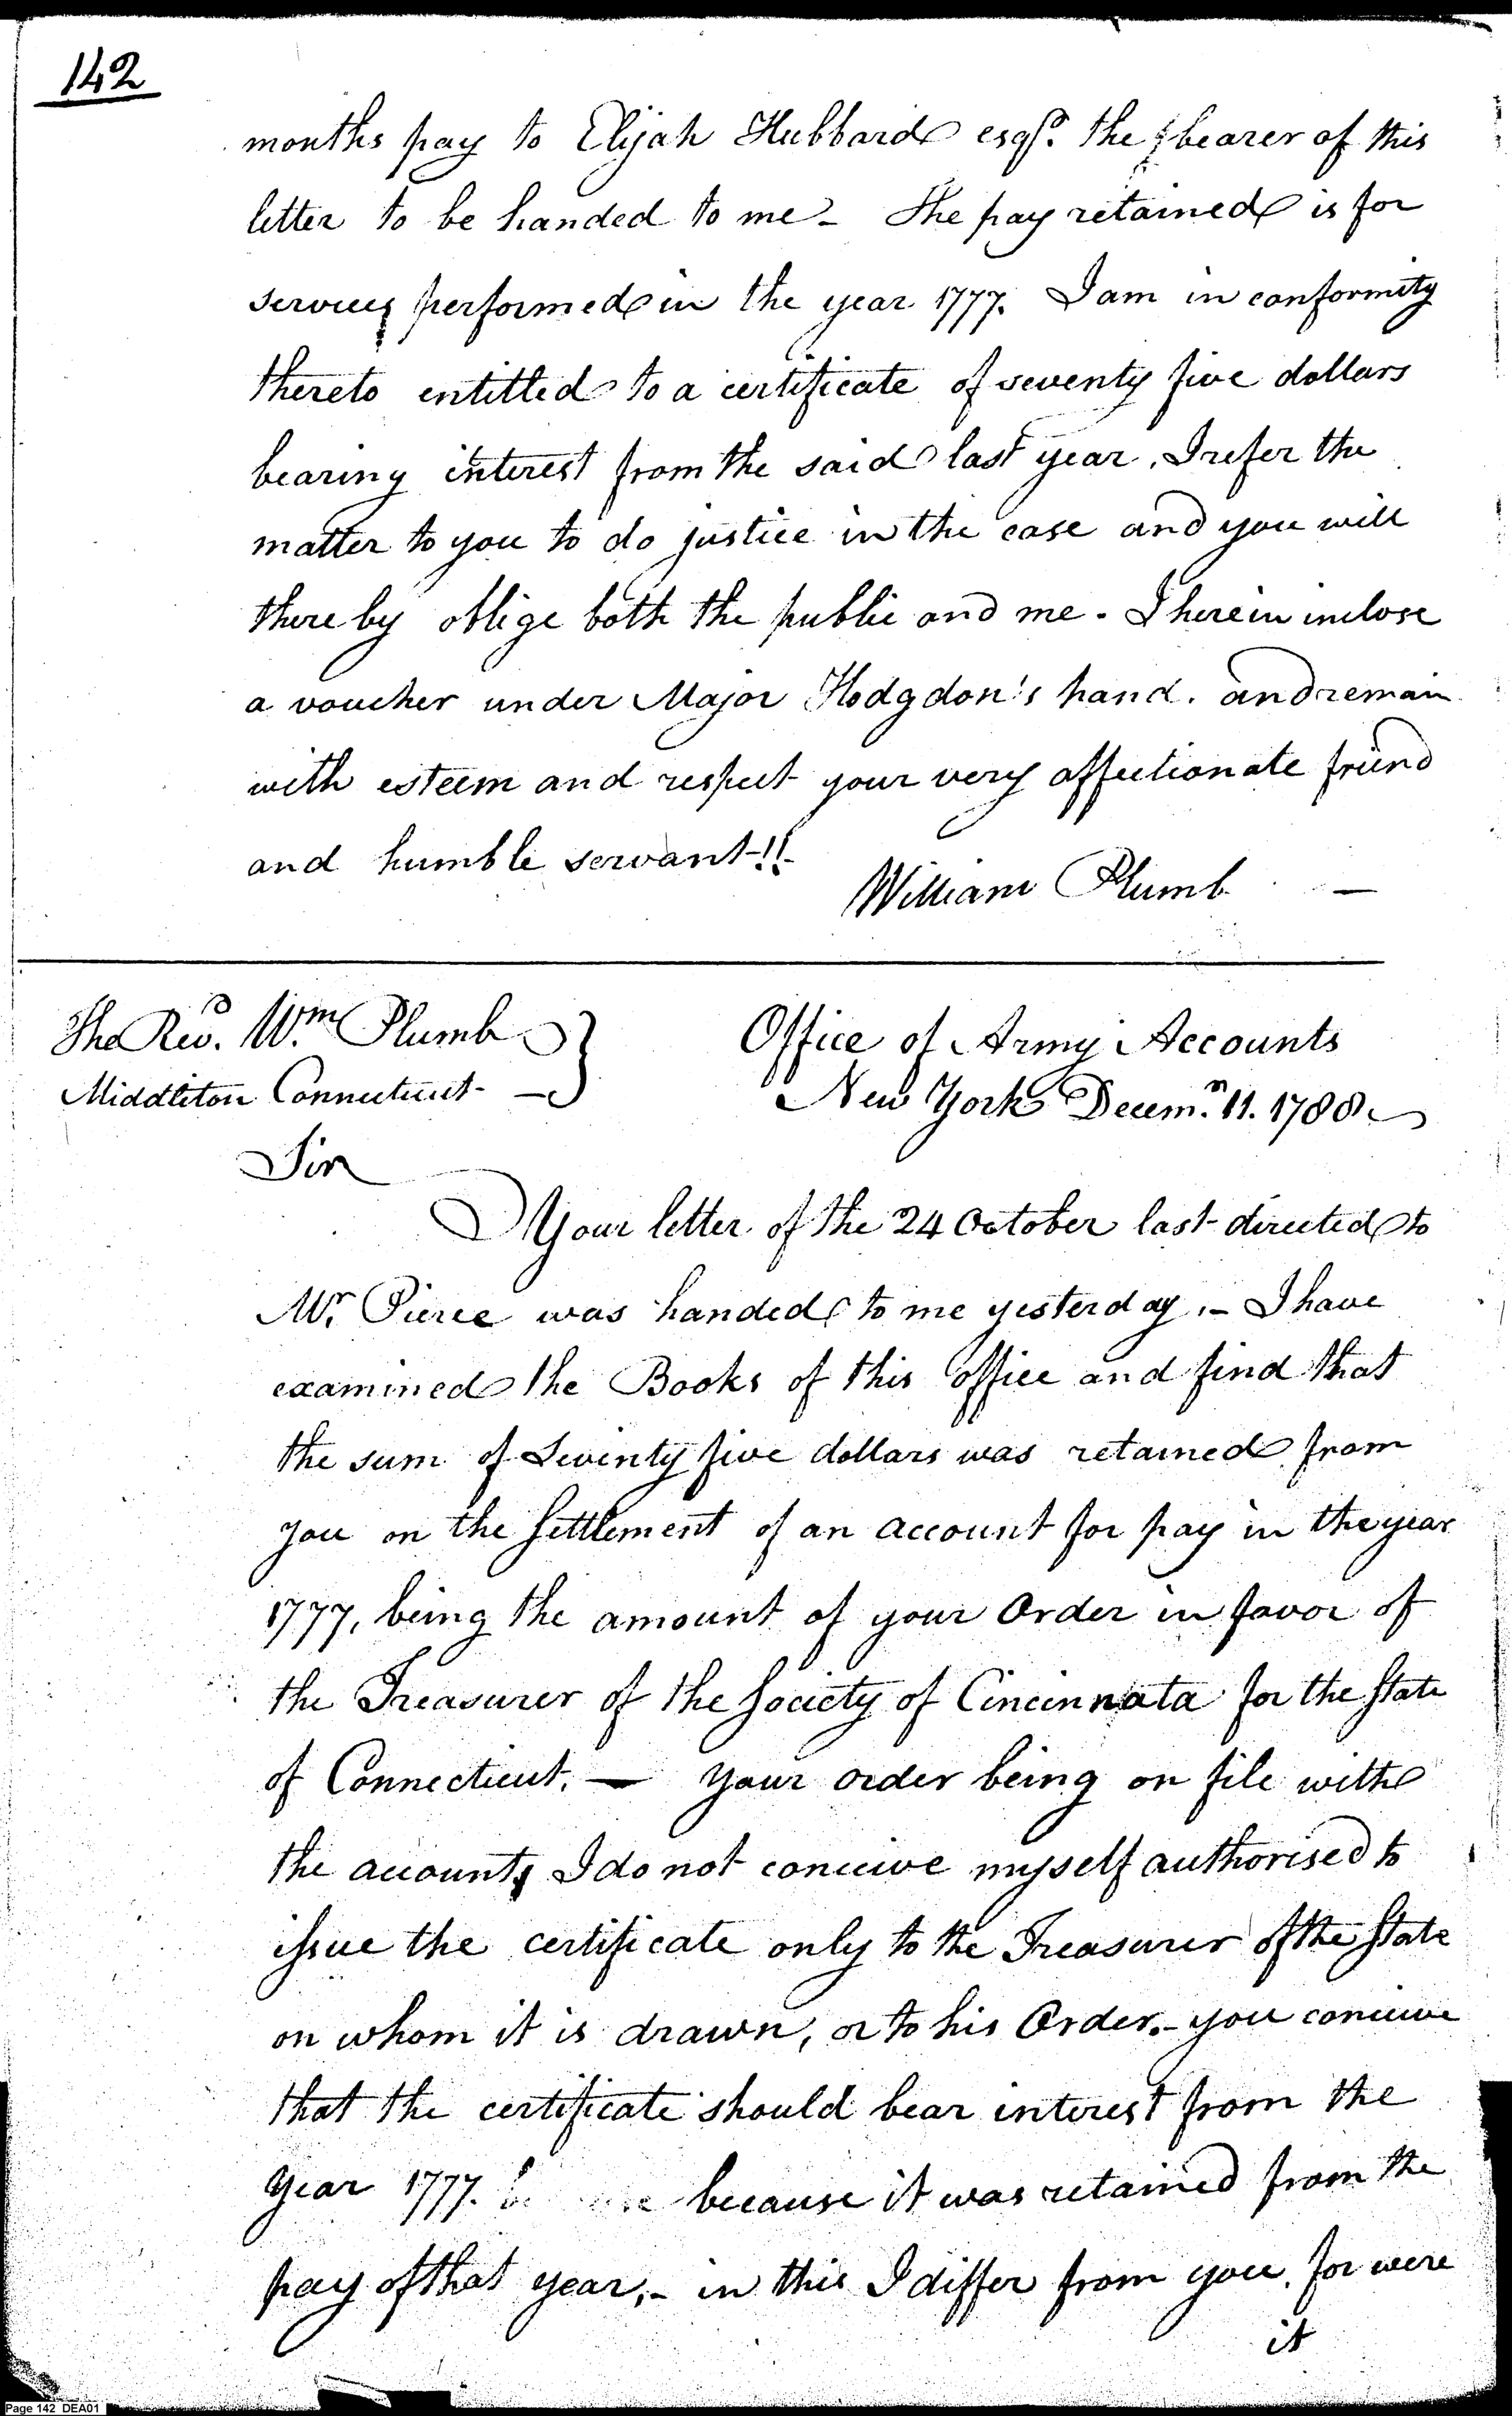 142
months pay to Elijah Hubbard esqr. the bearer of this
letter to be handed to me - The pay retained is for
services performed in the year 1777. I am in conformity
thereto entitled to a certificate of seventy five dollars
bearing interest from the said last year. I refer the
matter to you to do justice in the case and you will
there by oblige both the public and me - I herein inclose
a voucher under Major Hodgdon's hand. and remain
with esteem and respect your very affectionate friend
and humble servant-!!-
William Plumb -
The Revd. Wm Plumb
Middleton Connecticut -
Office of Army Accounts
New York Decemr. 11. 1788
Sir
Your letter of the 24 October last directed to
Mr. Pierce was handed to me yesterday. - I have
examined the Books of this office and find that
the sum of Seventy five dollars was retained from
you on the settlement of an account for pay in the year
1777, being the amount of your Order in favor of
the Treasurer of the Society of Cincinnata for the State
of Connecticut. — your order being on file with
the accounts I do not conceive myself authorised to
issue the certificate only to the Treasurer of the State
on whom it is drawn, or to his Order. - you conceive
that the certificate should bear interest from the
year 1777. because it was retained from the
pay of that year, - in this I differ from you. for were
it
Page 142 DEA01